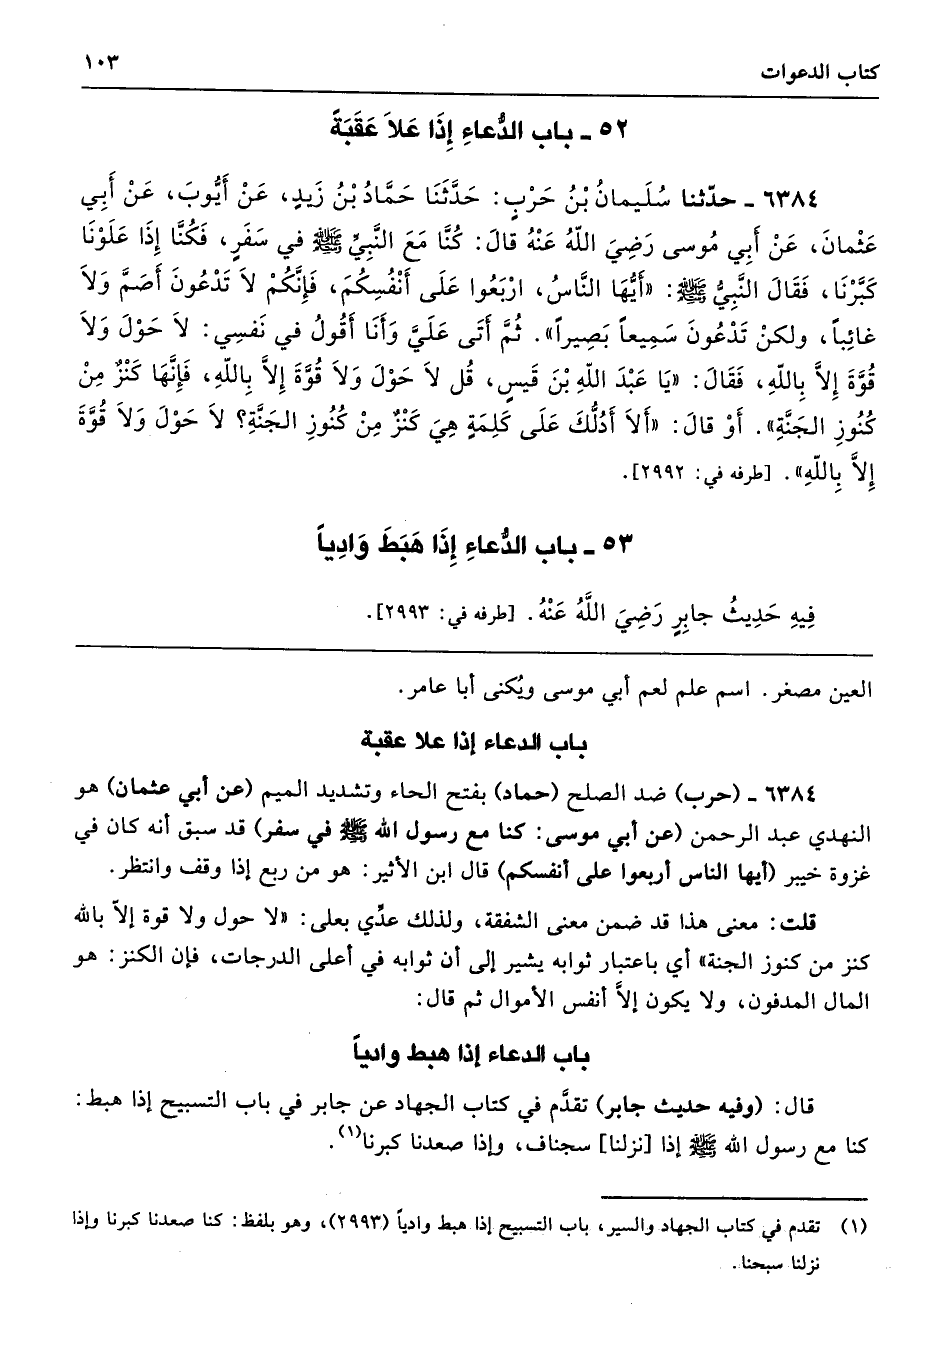 كتاب الدعوات ١٠٣
٥٢ ـ باب الدُّعاءِ إِذَا عَلاَ عَقَبَةً
٦٣٨٤ ـ حدّثنا سُلَيمانُ بْنُ حَرْبٍ: حَدَّثَنَا حَمَّادُ بْنُ زَيدٍ، عَنْ أَيُّوبَ، عَنْ أَبِي
عَثْمانَ، عَنْ أَبِي مُوسى رَضِيَ اللّهُ عَنْهُ قالَ: كُنَّا مَعَ النَّبِيِّ ﷺ في سَفَرٍ، فَكُنَّا إِذَا عَلَوْنَا
كَبَّرْنَا، فَقَالَ النَّبِيُّ ﷺ: «أَيُّهَا النَّاسُ، ارْبَعُوا عَلَى أَنْفُسِكُمْ، فَإِنَّكُمْ لاَ تَدْعُونَ أَصَمَّ وَلاَ
غائِباً، ولكنْ تَدْعُونَ سَمِيعاً بَصِيراً». ثُمَّ أَتى عَلَيَّ وَأَنا أَقُولُ في نَفسِي: لاَ حَوْلَ وَلاَ
قُوَّةَ إِلاَّ بِاللّهِ، فَقَالَ: «يَا عَبْدَ اللّهِ بْنَ قَيسٍ، قُل لاَ حَوْلَ وَلاَ قُوَّةَ إِلاَّ بِاللّهِ، فَإِنَّهَا كَنْزٌ مِنْ
كُنُوزِ الجَنَّةِ». أَوْ قالَ: «أَلاَ أَدُلُّكَ عَلَى كَلِمَةٍ هِيَ كَنْزٌ مِنْ كُنُوزِ الجَنَّةِ؟ لاَ حَوْلَ وَلاَ قُوَّةَ
إِلاَّ بِاللّهِ». [طرفه في: ٢٩٩٢].
٥٣ ـ باب الدُّعاءِ إِذَا هَبَطَ وَادِياً
فِيهِ حَدِيثُ جابِرٍ رَضِيَ اللَّهُ عَنْهُ. [طرفه في: ٢٩٩٣].
العين مصغر. اسم علم لعم أبي موسى ويُكنى أبا عامر.
باب الدعاء إذا علا عقبة
٦٣٨٤ ـ (حرب) ضد الصلح (حماد) بفتح الحاء وتشديد الميم (عن أبي عثمان) هو
النهدي عبد الرحمن (عن أبي موسى: كنا مع رسول الله ﷺ في سفر) قد سبق أنه كان في
غزوة خيبر (أيها الناس أربعوا على أنفسكم) قال ابن الأثير: هو من ربع إذا وقف وانتظر.
قلت: معنى هذا قد ضمن معنى الشفقة، ولذلك عدِّي بعلى: «لا حول ولا قوة إلاّ بالله
كنز من كنوز الجنة» أي باعتبار ثوابه يشير إلى أن ثوابه في أعلى الدرجات، فإن الكنز: هو
المال المدفون، ولا يكون إلاَّ أنفس الأموال ثم قال:
باب الدعاء إذا هبط وادياً
قال: (وفيه حديث جابر) تقدَّم في كتاب الجهاد عن جابر في باب التسبيح إذا هبط:
كنا مع رسول الله ﷺ إذا [نزلنا] سجناف، وإذا صعدنا كبرنا(١).
(١) تقدم في كتاب الجهاد والسير، باب التسبيح إذا هبط وادياً (٢٩٩٣)، وهو بلفظ: كنا صعدنا كبرنا وإذا
نزلنا سبحنا.